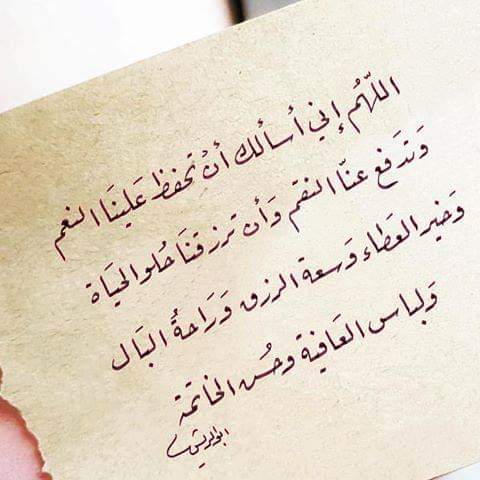 اللّهُم إني أسألك أنْ تحفظ عَلينَا النعم
وَتدَفع عنّا النقم وَأن ترزقنَا حُلو الحيَاة
وَخير العَطاء وَسعة الرزق وَرَاحةُ البَال
وَلباس العَافية وحُسن الخاتمة